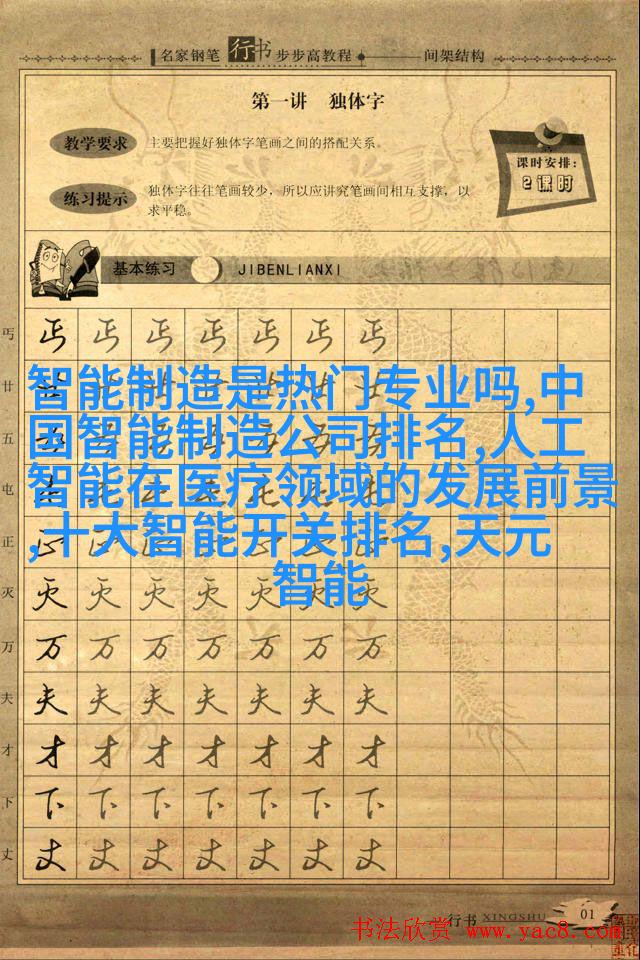 名家钢笔 行书 步步高教程 间架结构
第一讲 独体字
教学要求
主要把握好独体字笔画之间的搭配关系。
课时安排:
2课时
练习提示
独体字往往笔画较少，所以应讲究笔画间相互支撑，以
求平稳。
基本练习 JIBENLIANXI
丐 丐 丐 丐 丐 丐 丐 丐
智能制造是热门专业吗,中
国智能制造公司排名,人工
智能在医疗领域的发展前景
,十大智能开关排名,天元
智能
廿
五
屯
正
灭 灭 灭 灭 灭 灭 灭 灭
万 万 万 万 万 万 万 万
夫 夫 夫 夫 夫 夫 夫 夫
才 才 才 才 才 才 才 才
下 下 下 下 下 下 下 下
丈 丈 丈 丈 丈 丈 丈 丈
行书 XINGSHU 01
书法欣赏 www.yac8.com